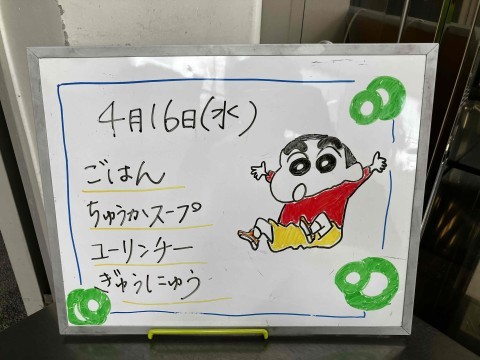 4月16日(水)
ごはん
ちゅうかスープ
ユーリンチー
ぎゅうにゅう